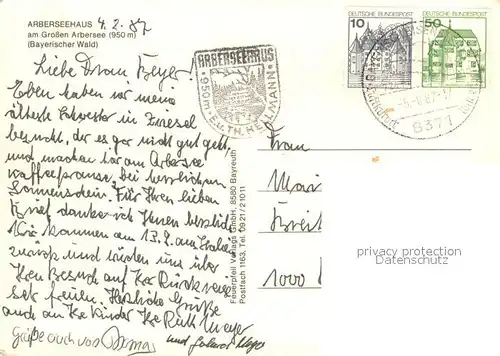 ARBERSEEHAUS 4.2.87
am Großen Arbersee (950 m)
(Bayerischer Wald)
Liebe Frau Beyer!
Eben haben wir meine
älteste Schwester in Zwiesel
besucht, der es gar nicht gut geht,
und machen hier am Arbersee
Kaffeepause, bei herrlichem
Sonnenschein. Für Ihren lieben
Brief danke ich Ihnen herzlich.
Wir kommen am 13.2. am
zurück und würden uns über
Ihren Besuch auf der Rückreise
sehr freuen. Herzliche Grüße
auch an Ihre Kinder Ihre Ruth Meyer
Grüße auch von und
ARBERSEEHAUS
950m
E.u.TH. HELLMANN
Feuerpfeil Verlags GmbH, 8580 Bayreuth
Postfach 1163, Tel. 0921/21011
DEUTSCHE BUNDESPOST
10
DEUTSCHE BUNDESPOST
50
8371
Frau
1000
privacy protection
Datenschutz